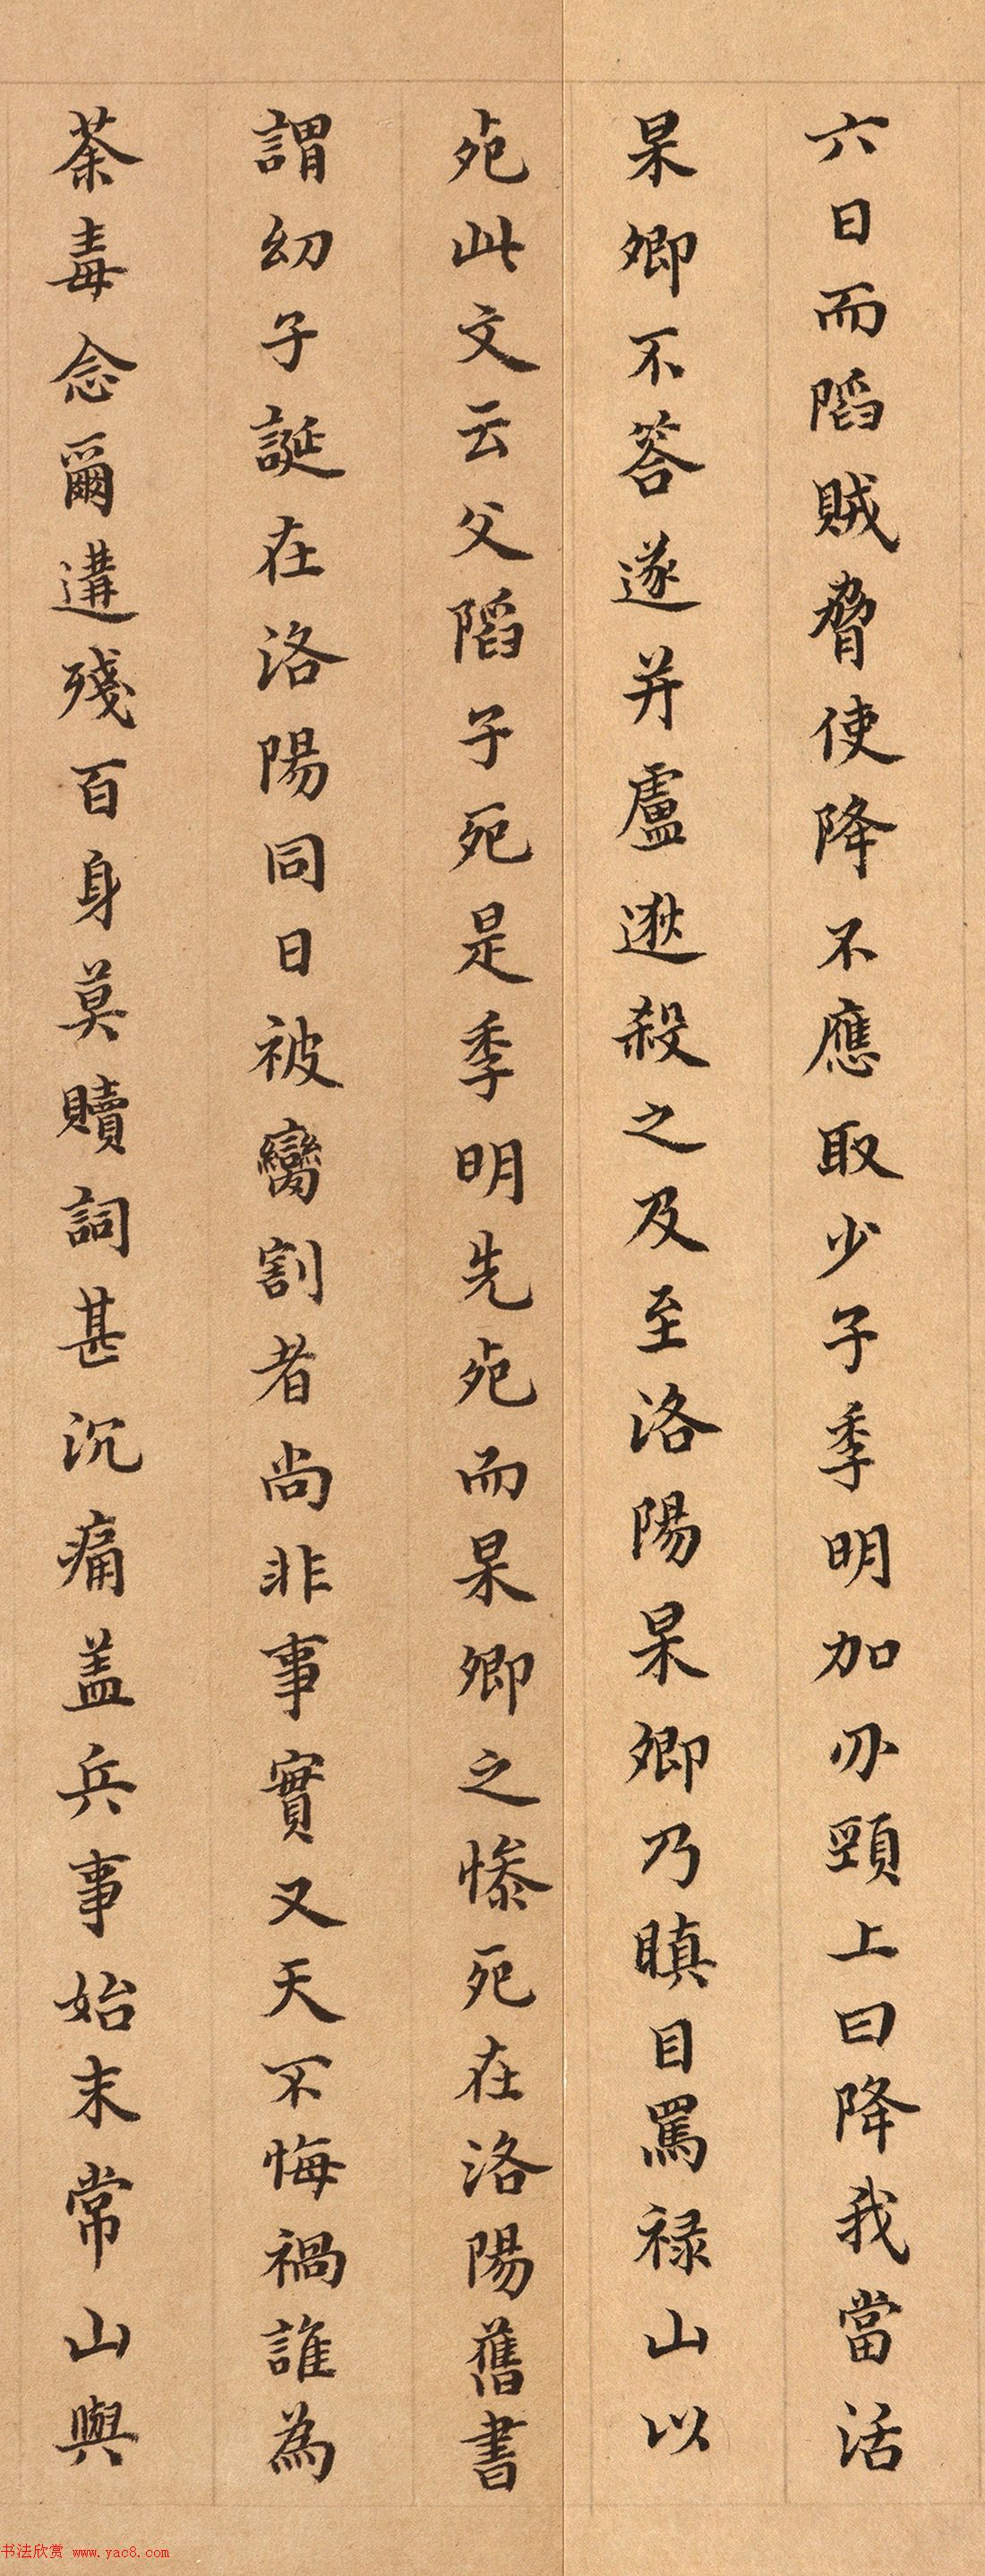 六日而陷賊脅使降不應取少子季明加刃頸上曰降我當活
杲卿不答遂并盧逖殺之及至洛陽杲卿乃瞋目罵祿山以
死此文云父陷子死是季明先死而杲卿之慘死在洛陽舊書
謂幼子誕在洛陽同日被臠割者尚非事實又天不悔禍誰為
荼毒念爾遘殘百身莫贖詞甚沉痛蓋兵事始末常山與
书法欣赏 www.yac8.com